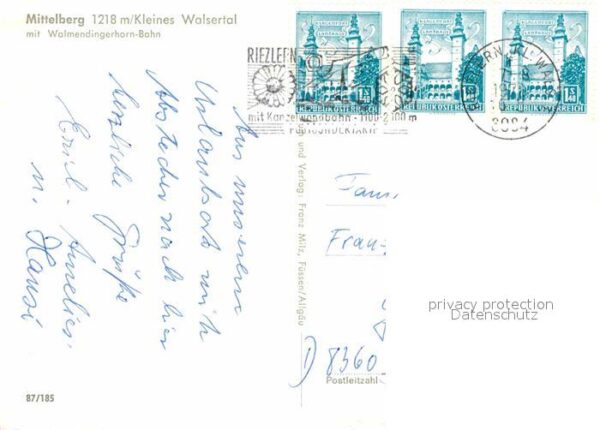 Mittelberg 1218 m/Kleines Walsertal
mit Walmendingerhorn-Bahn
Aus unserem
Urlaubsort mit
Abstecher nach hier
herzliche Grüße
Emil - Annelies
u. Hansi
87/185
RIEZLERN
mit Kanzelwandbahn · 1100-2100 m
REPUBLIK ÖSTERREICH
REPUBLIK ÖSTERREICH
REPUBLIK ÖSTERREICH
und Verlag: Franz Milz, Füssen/Allgäu
Fam
Fran
D 8360
Postleitzahl
privacy protection
Datenschutz